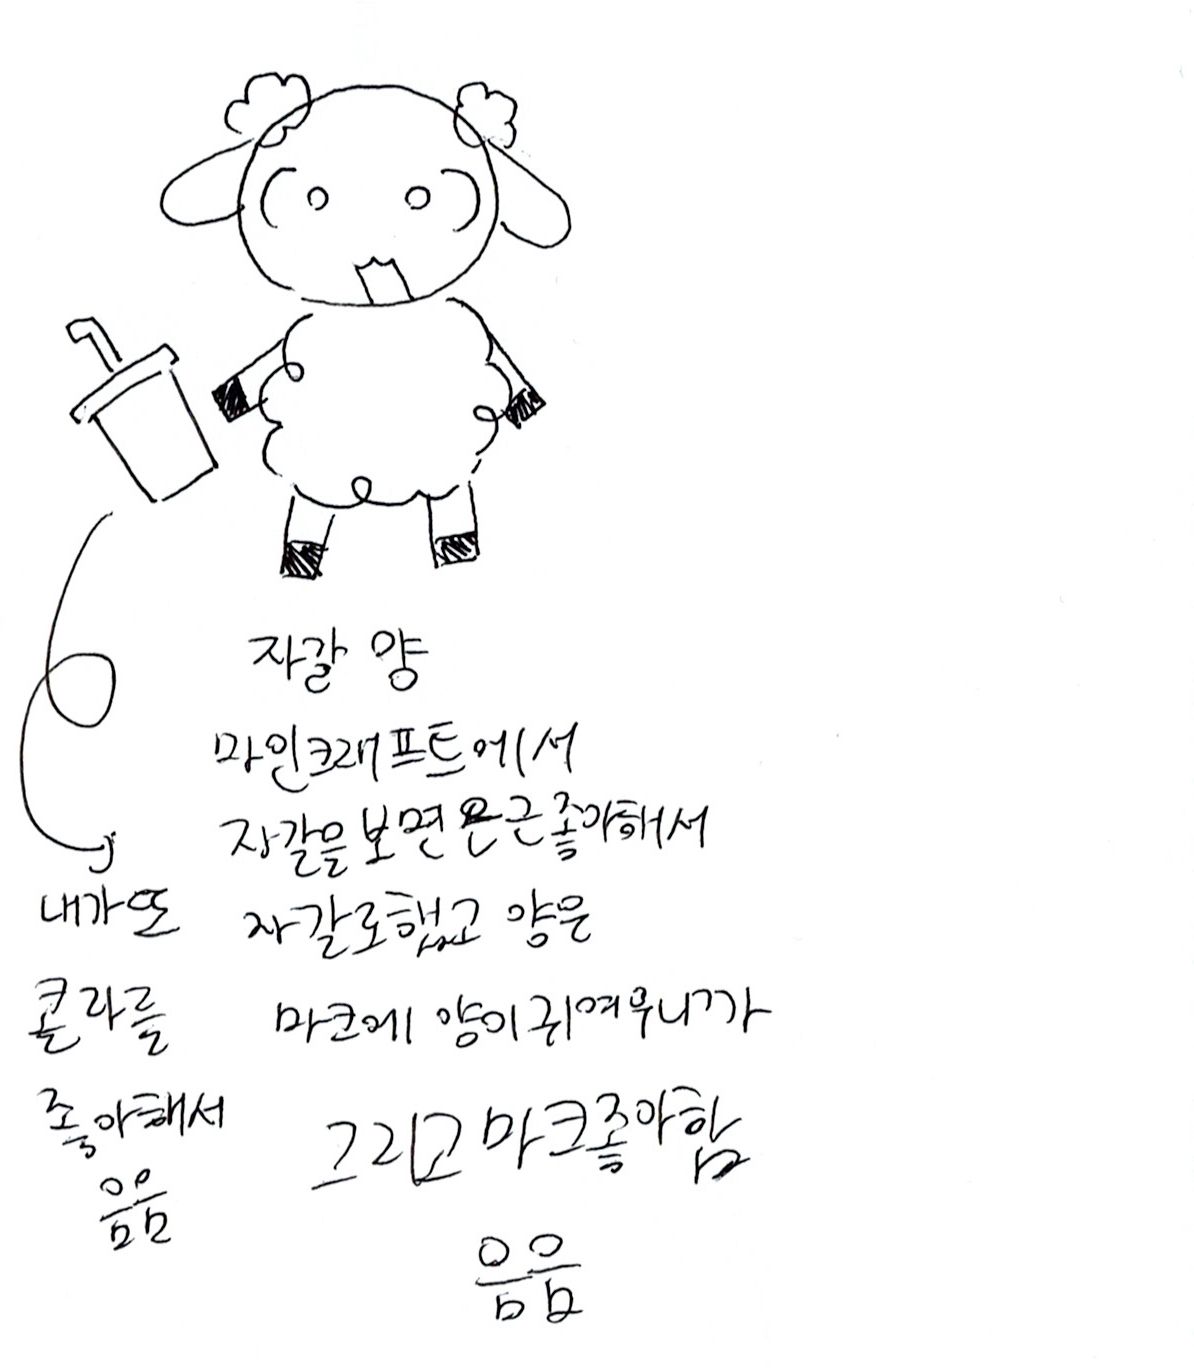 자갈 양
마인크래프트에서
자갈을 보면 은근 좋아해서
자갈로했고 양은
마크에 양이 귀여우니까
그리고 마크좋아함
음음
내가 또
콜라를
좋아해서
음음